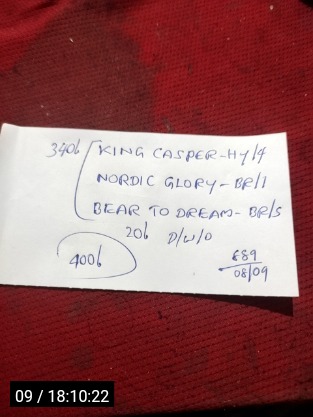 340b KING CASPER-HY/4
NORDIC GLORY-BR/1
BEAR TO DREAM-BR/S
20b D/W/O
400b
689
08/09
09 / 18:10:22